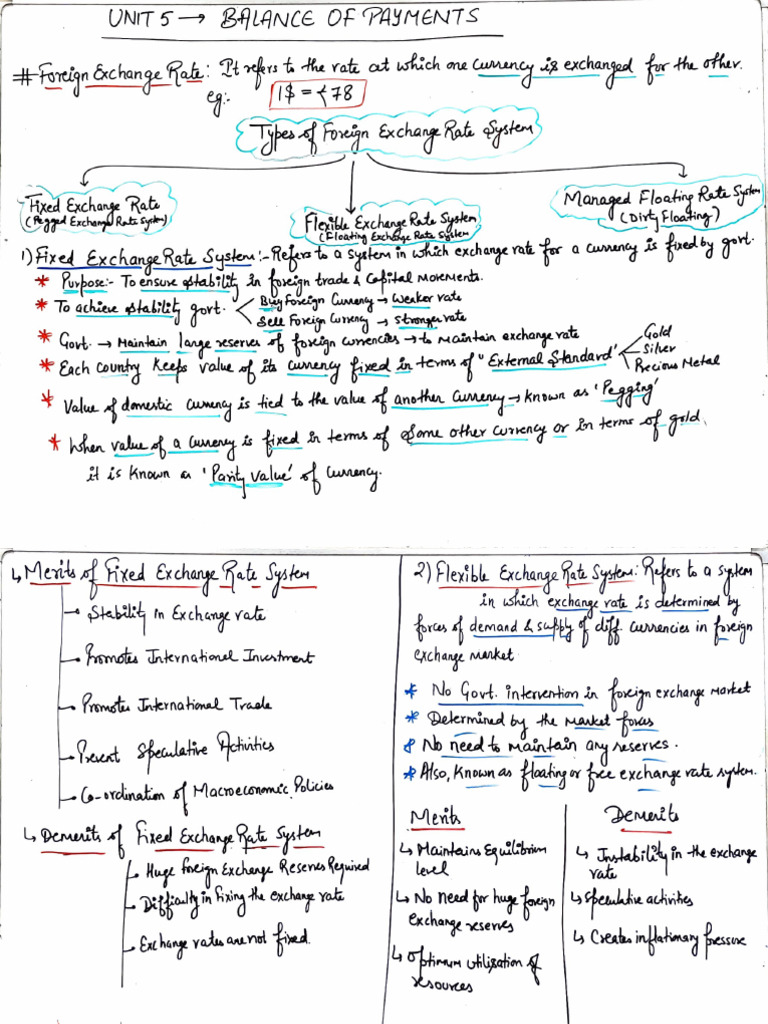 UNIT 5 → BALANCE OF PAYMENTS
# Foreign Exchange Rate: It refers to the rate at which one currency is exchanged for the other.
eg:- 1$ = ₹78
Types of Foreign Exchange Rate System
Fixed Exchange Rate
(Pegged Exchange Rate System)
Flexible Exchange Rate System
(Floating Exchange Rate System
Managed Floating Rate System
(Dirty Floating)
1) Fixed Exchange Rate System:- Refers to a system in which exchange rate for a currency is fixed by govt.
* Purpose:- To ensure stability in foreign trade & Capital Movements.
* To achieve stability govt. < Buy Foreign Currency → Weaker rate
Sell Foreign Currency → Stronger rate
* Govt. → Maintain large reserves of foreign currencies → to maintain exchange rate
* Each country keeps value of its currency fixed in terms of "External Standard" < Gold
Silver
Precious Metal
* Value of domestic currency is tied to the value of another currency → known as 'Pegging'
* When value of a currency is fixed in terms of some other currency or in terms of gold,
it is known as 'Parity value' of currency.
↳ Merits of Fixed Exchange Rate System
Stability in Exchange rate
Promotes International Investment
Promotes International Trade
Prevent Speculative Activities
Co-ordination of Macroeconomic Policies
↳ Demerits of Fixed Exchange Rate System
Huge Foreign Exchange Reserves Required
Difficulty in Fixing the exchange rate
Exchange rates are not fixed.
2) Flexible Exchange Rate System: Refers to a system
in which exchange rate is determined by
forces of demand & supply of diff. currencies in foreign
exchange market
* No Govt. intervention in foreign exchange market
* Determined by the market forces
* No need to maintain any reserves.
* Also, Known as floating or free exchange rate system.
Merits
↳ Maintains Equilibrium
level
↳ No need for huge foreign
exchange reserves
↳ Optimum utilisation of
resources
Demerits
↳ Instability in the exchange
rate
↳ Speculative activities
↳ Creates inflationary pressure